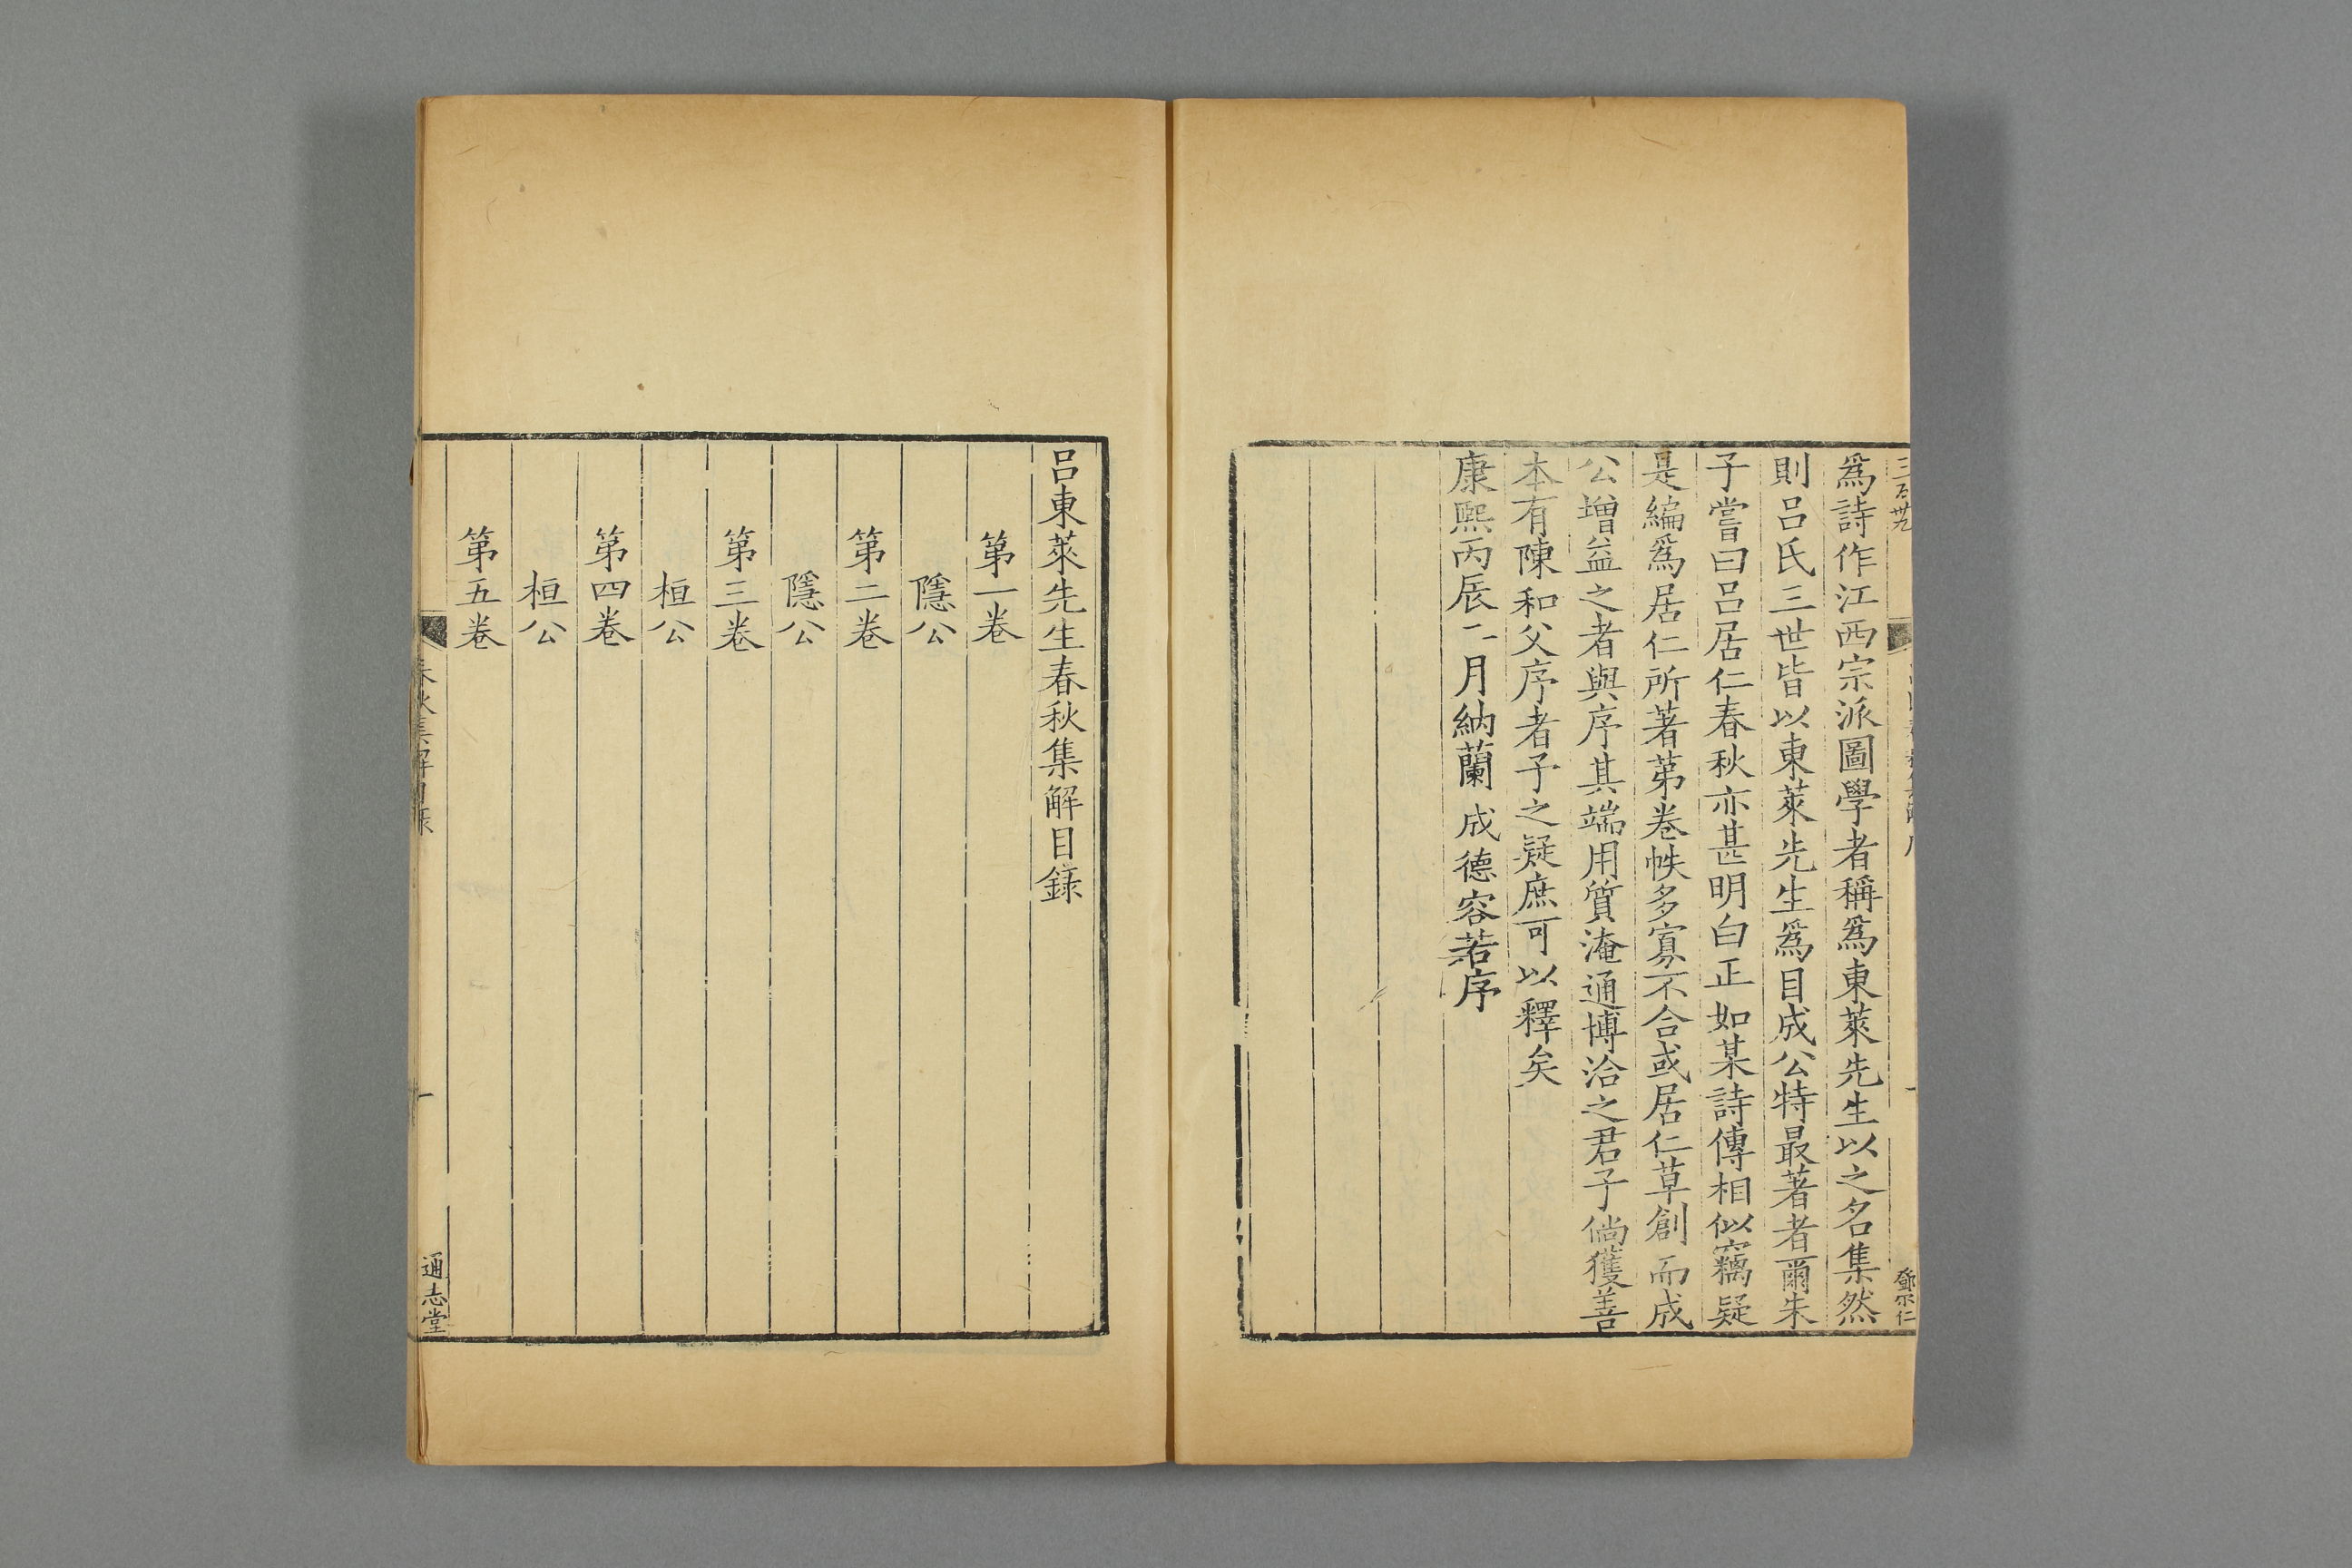 三百卅九
鄧尔仁
爲詩作江西宗派圖學者稱爲東萊先生以之名集然
則呂氏三世皆以東萊先生爲目成公特最著者爾朱
子嘗曰呂居仁春秋亦甚明白正如某詩傳相似竊疑
是編爲居仁所著第卷帙多寡不合或居仁草創而成
公增益之者與序其端用質淹通博洽之君子倘獲善
本有陳和父序者子之疑庶可以釋矣
康熙丙辰二月納蘭成德容若序
呂東萊先生春秋集解目錄
第一卷
隱公
第二卷
隱公
第三卷
桓公
第四卷
桓公
第五卷
春秋集解目錄
一
通志堂